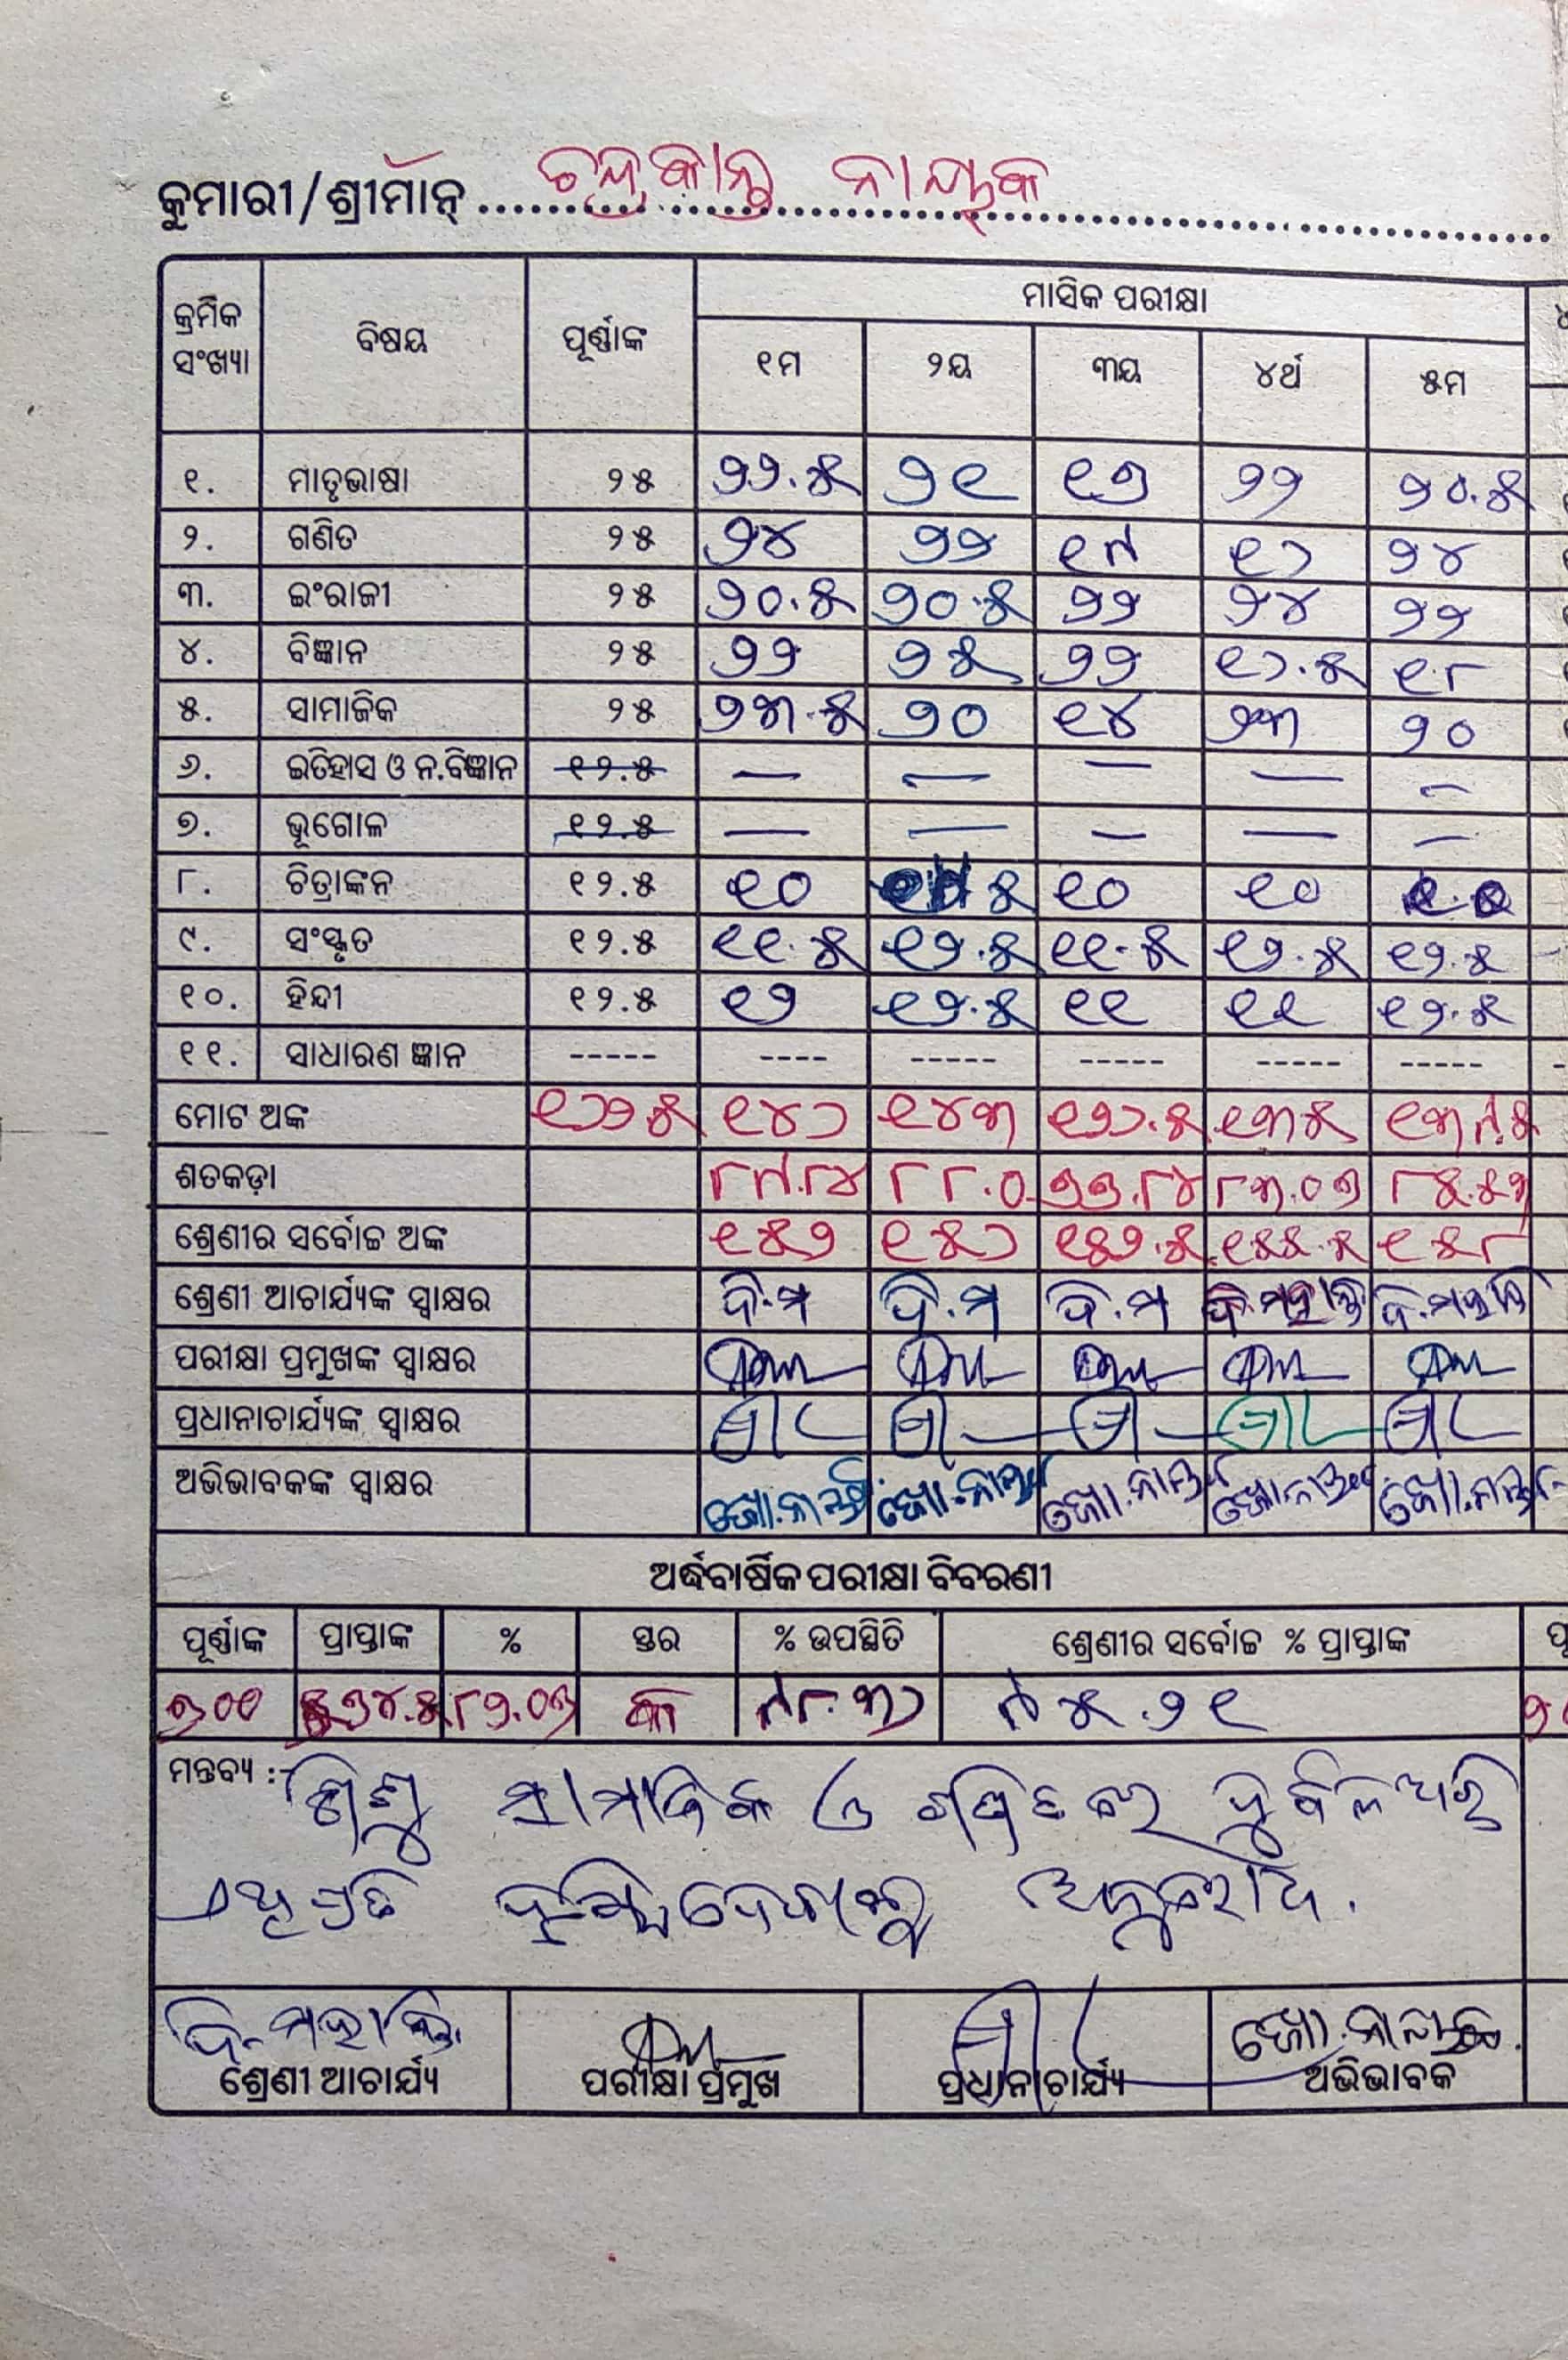 କୁମାରୀ/ଶ୍ରୀମାନ୍ ଚନ୍ଦ୍ରକାନ୍ତ ନାୟକ
କ୍ରମିକ ସଂଖ୍ୟା ବିଷୟ ପୂର୍ଣ୍ଣାଙ୍କ ମାସିକ ପରୀକ୍ଷା
୧ମ ୨ୟ ୩ୟ ୪ର୍ଥ ୫ମ
୧. ମାତୃଭାଷା ୨୫ ୨୨.୫ ୨୧ ୧୭ ୨୨ ୨୦.୫
୨. ଗଣିତ ୨୫ ୨୪ ୨୨ ୧୯ ୧୬ ୨୪
୩. ଇଂରାଜୀ ୨୫ ୨୦.୫ ୨୦.୫ ୨୨ ୨୪ ୨୨
୪. ବିଜ୍ଞାନ ୨୫ ୨୨ ୨୫ ୨୨ ୧୬.୫ ୧୮
୫. ସାମାଜିକ ୨୫ ୨୩.୫ ୨୦ ୧୪ ୨୩ ୨୦
୬. ଇତିହାସ ଓ ନ.ବିଜ୍ଞାନ ୧୨.୫ — — — — —
୭. ଭୂଗୋଳ ୧୨.୫ — — — — —
୮. ଚିତ୍ରାଙ୍କନ ୧୨.୫ ୧୦ ୧୦ ୧୦
୯. ସଂସ୍କୃତ ୧୨.୫ ୧୧.୫ ୧୨.୫ ୧୧.୫ ୧୨.୫ ୧୨.୫
୧୦. ହିନ୍ଦୀ ୧୨.୫ ୧୨ ୧୨.୫ ୧୧ ୧୧ ୧୨.୫
୧୧. ସାଧାରଣ ଜ୍ଞାନ ----- ---- ----- ----- ----- -----
ମୋଟ ଅଙ୍କ ୧୬୨.୫ ୧୪୬ ୧୪୩ ୧୨୬.୫ ୧୩୫ ୧୩୯.୫
ଶତକଡ଼ା ୮୯.୮୪ ୮୮.୦ ୭୭.୮୪ ୮୩.୦୭ ୮୫.୫୩
ଶ୍ରେଣୀର ସର୍ବୋଚ୍ଚ ଅଙ୍କ ୧୫୨ ୧୫୬ ୧୫୨.୫ ୧୫୫.୫ ୧୫୮
ଶ୍ରେଣୀ ଆଚାର୍ଯ୍ୟଙ୍କ ସ୍ୱାକ୍ଷର ଦି.ମ ଦି.ମ ଦି.ମ ଦି.ମହାନ୍ତି ଦି.ମହାନ୍ତି
ପରୀକ୍ଷା ପ୍ରମୁଖଙ୍କ ସ୍ୱାକ୍ଷର
ପ୍ରଧାନାଚାର୍ଯ୍ୟଙ୍କ ସ୍ୱାକ୍ଷର
ଅଭିଭାବକଙ୍କ ସ୍ୱାକ୍ଷର
ଅର୍ଦ୍ଧବାର୍ଷିକ ପରୀକ୍ଷା ବିବରଣୀ
ପୂର୍ଣ୍ଣାଙ୍କ ପ୍ରାପ୍ତାଙ୍କ % ସ୍ତର % ଉପସ୍ଥିତି ଶ୍ରେଣୀର ସର୍ବୋଚ୍ଚ % ପ୍ରାପ୍ତାଙ୍କ
୮୨.୦୭ କ ୯୮.୩୬ ୯୫.୨୧
ମନ୍ତବ୍ୟ :- ଶିଶୁ ସାମାଜିକ ଓ ଦୁର୍ବଳ ଅଛି
ଏଥିପ୍ରତି ଦୃଷ୍ଟି ଦେବାକୁ ଅନୁରୋଧ.
ଦି. ମହାନ୍ତି
ଶ୍ରେଣୀ ଆଚାର୍ଯ୍ୟ ପରୀକ୍ଷା ପ୍ରମୁଖ ପ୍ରଧାନାଚାର୍ଯ୍ୟ ଅଭିଭାବକ